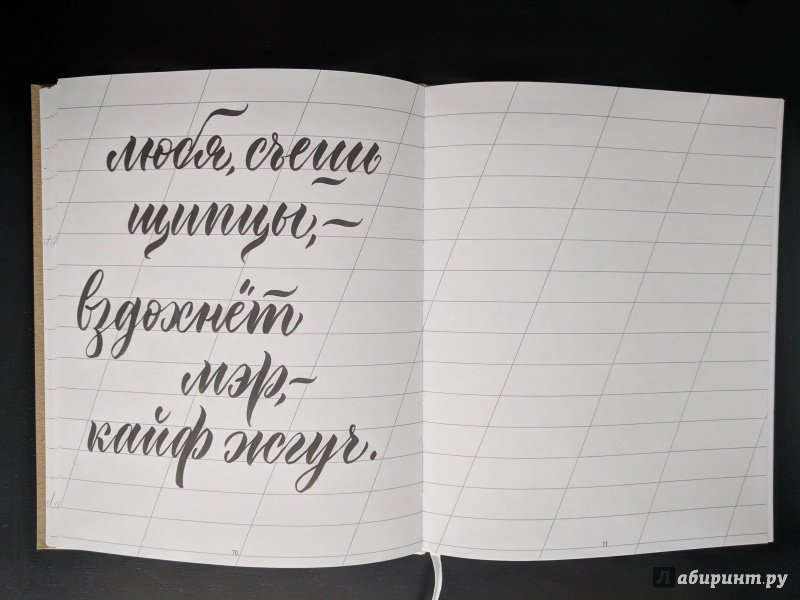 любя, съешь
щипцы, –
вздохнёт
мэр, –
кайф жгуч.
70
71
Лабиринт.ру